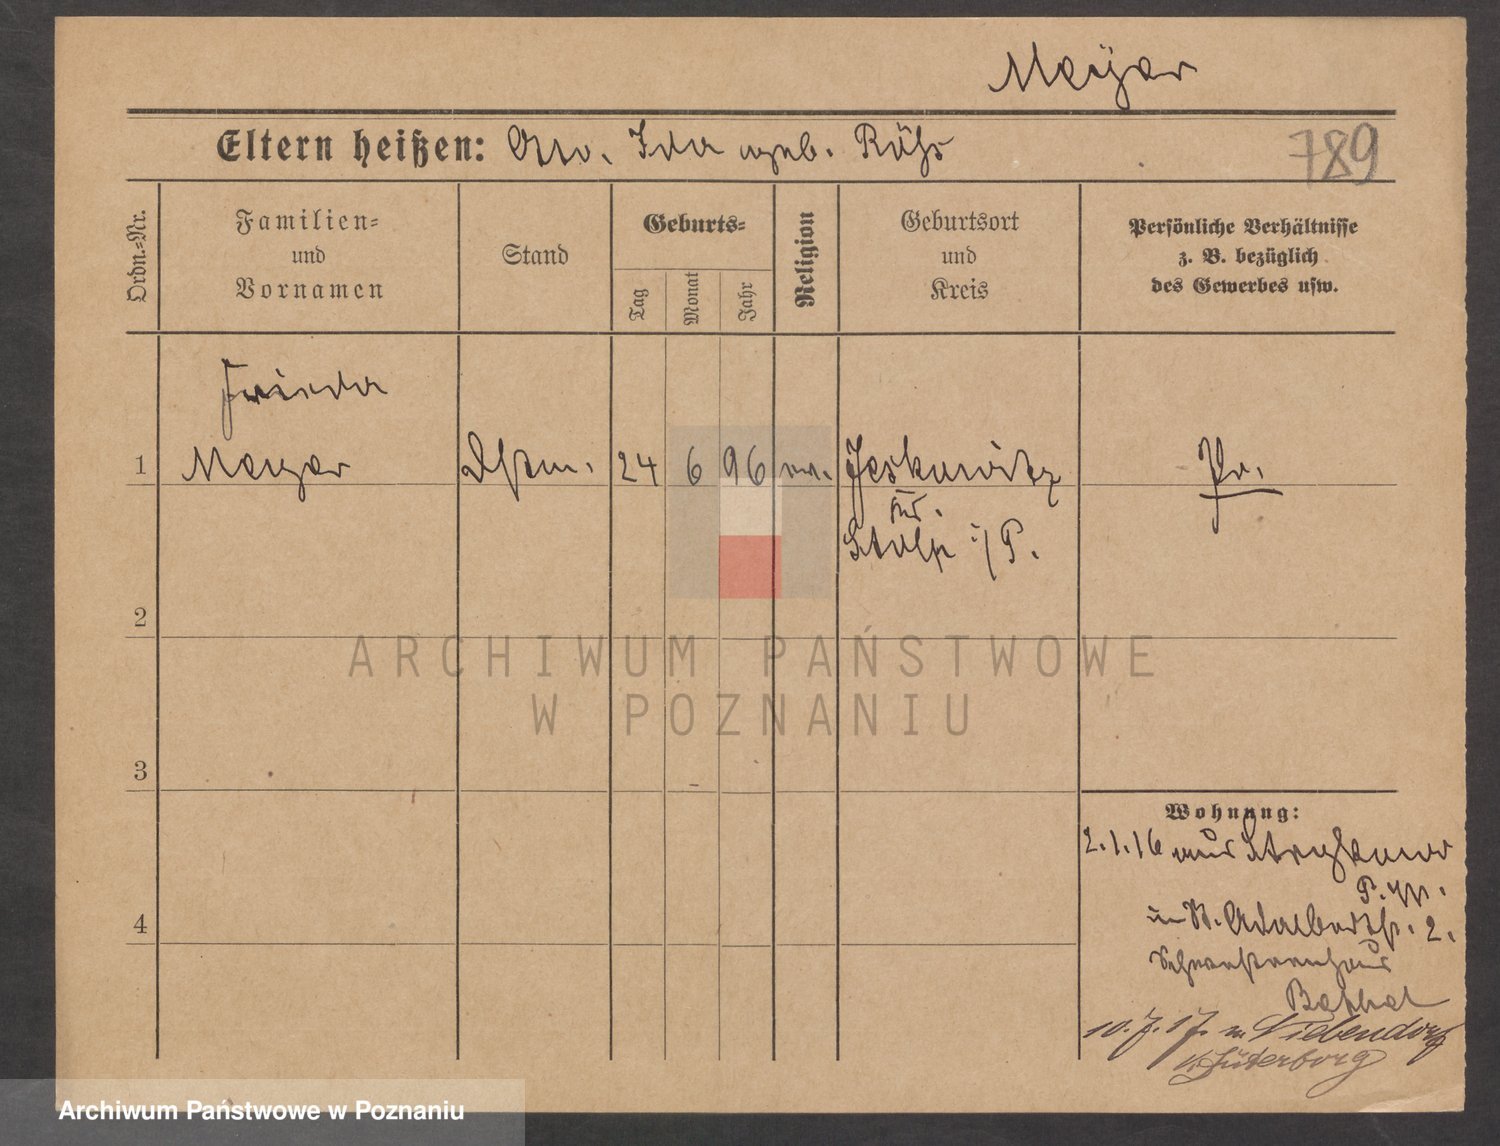 Meÿer
Eltern heißen: Otto. Ida geb. Röhr
789
Ordn.-Nr.
Familien-
und
Vornamen
Stand
Geburts-
Tag
Monat
Jahr
Religion
Geburtsort
und
Kreis
Persönliche Verhältnisse
z. B. bezüglich
des Gewerbes usw.
Frieda
1 Meyer 24 6 96 ev. Jeskewitz Pr.
Kr.
Stolp i/P.
2
ARCHIWUM PAŃSTWOWE
W POZNANIU
3
Wohnung:
2.1.16 aus
4
in St. Adalbertstr. 2.
Schwesternhaus
Bethel
10.7.17. n. Niebendorf
Jüterborg
Archiwum Państwowe w Poznaniu